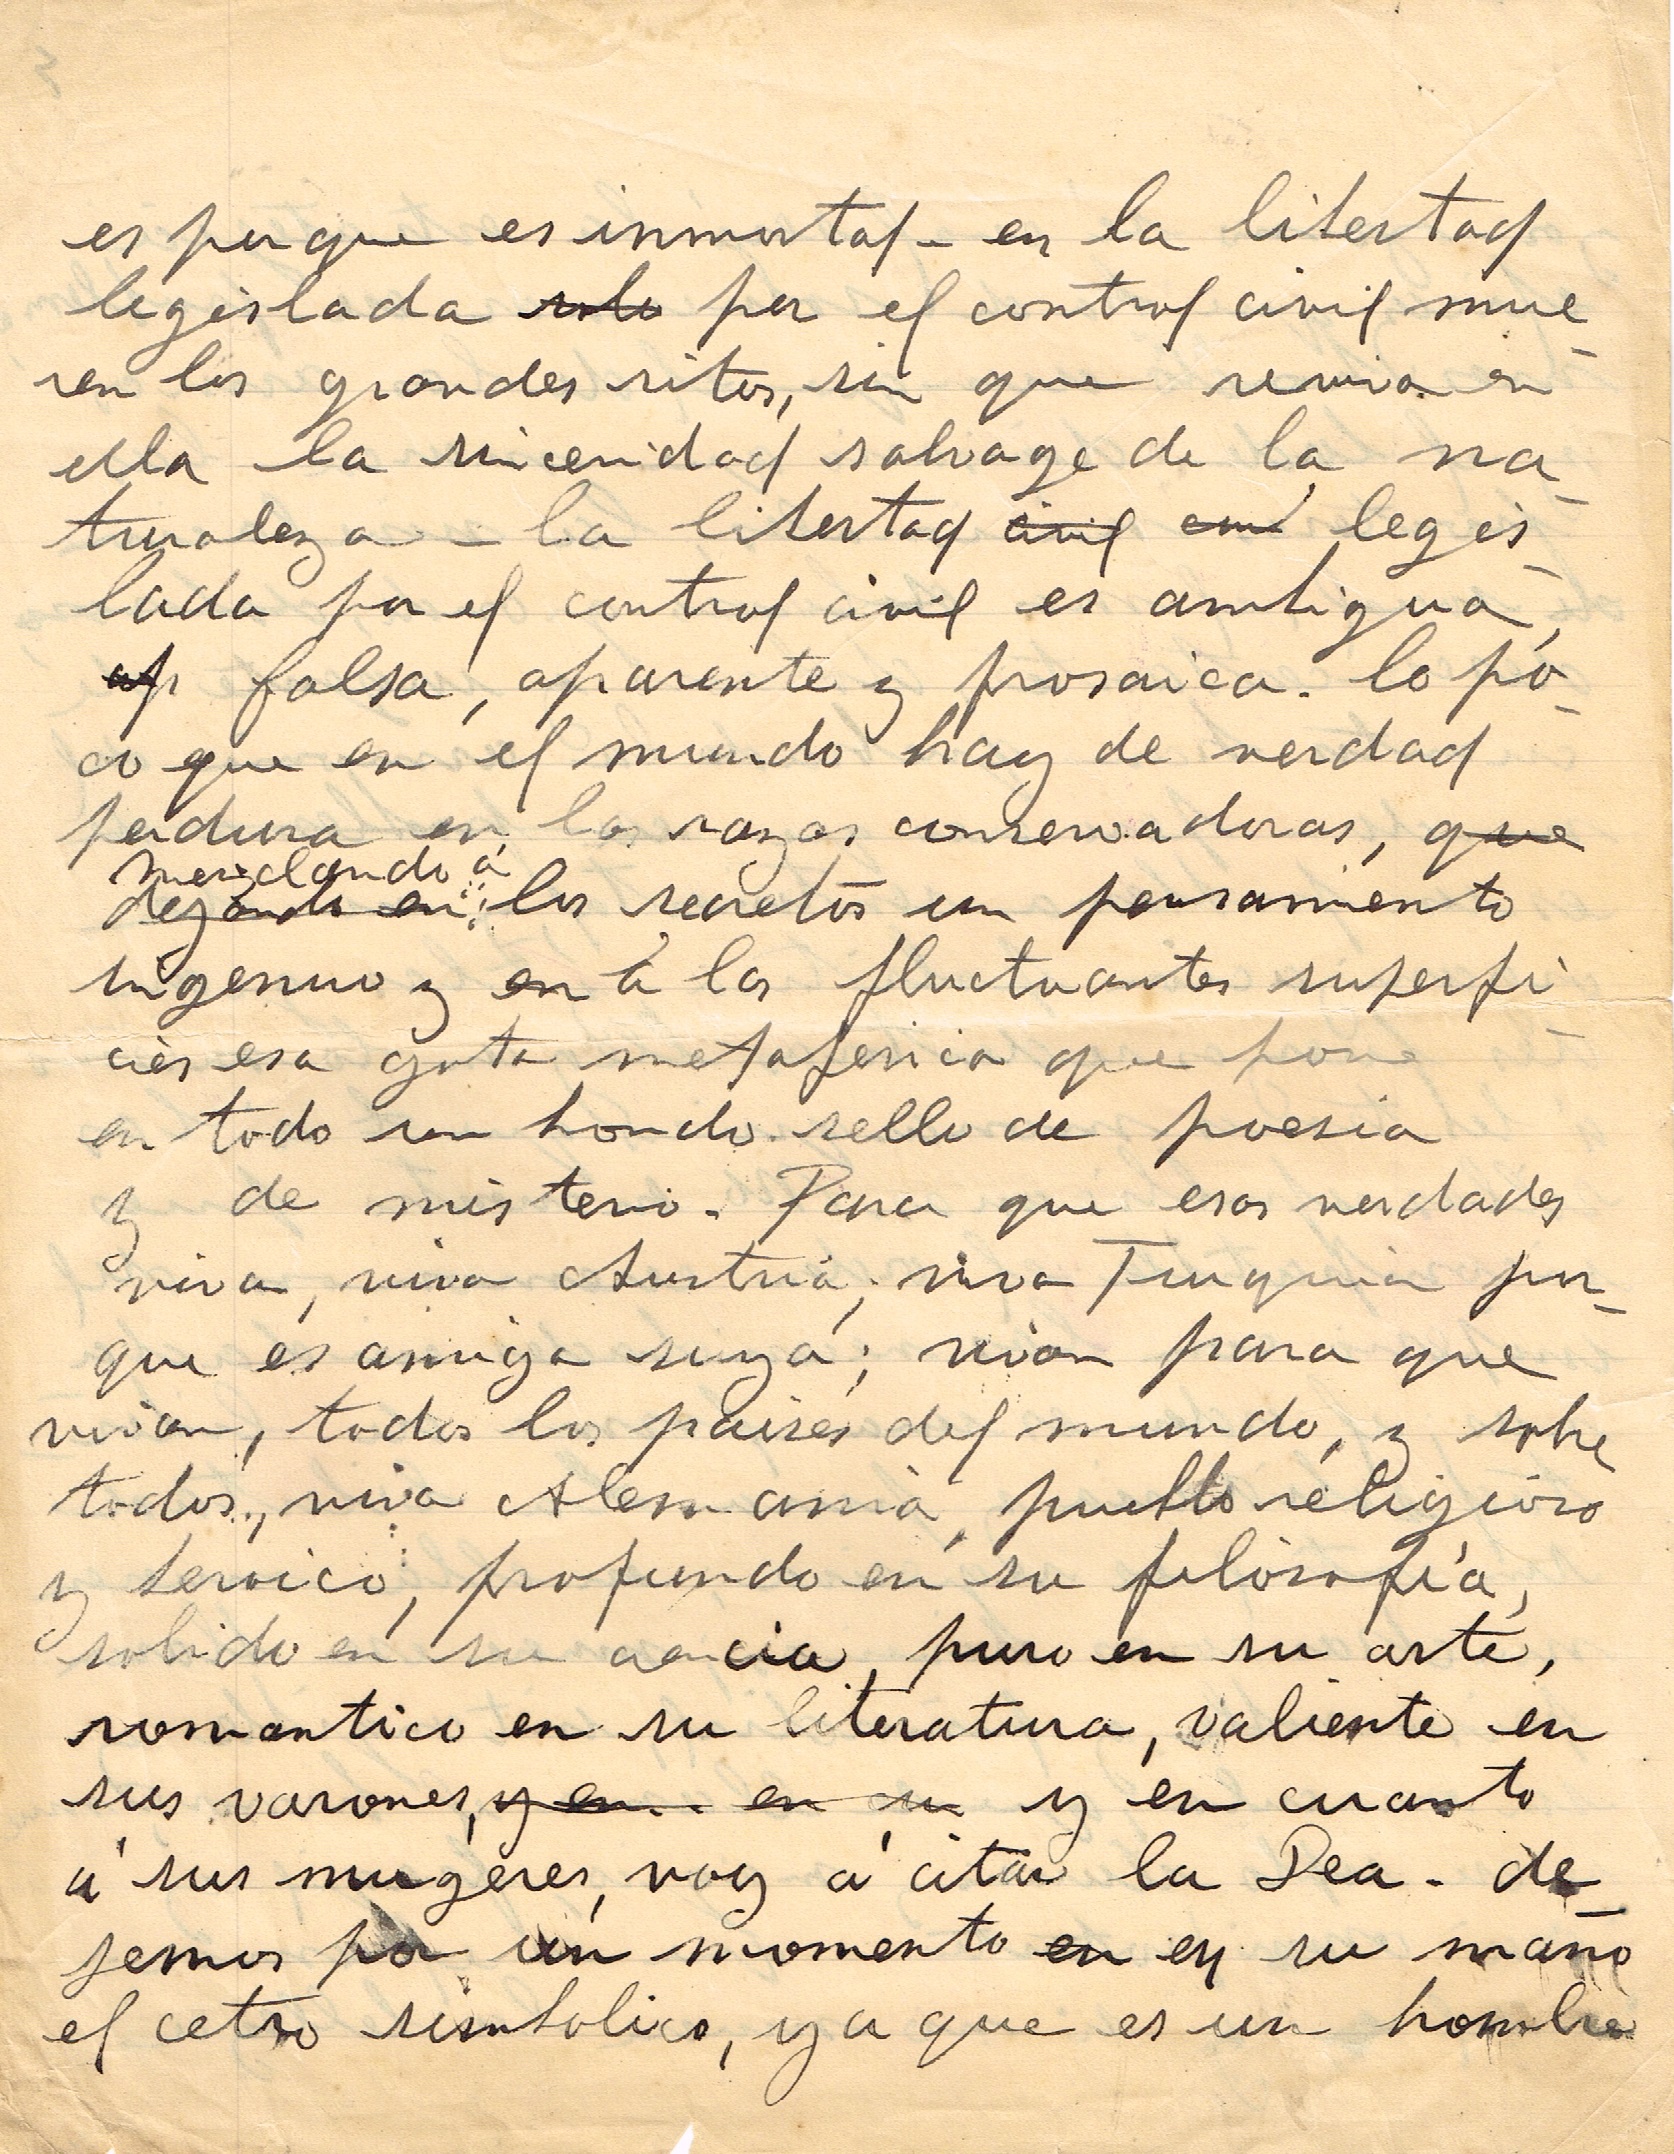 es porque es inmortal - en la libertad
legislada solo por el control civil mue-
ren los grandes ritos, sin que reviva en
ella la sinceridad salvage de la na-
turaleza - la libertad civil legis-
lada por el control civil es ambigua,
ap falsa, aparente y prosaica. lo po-
co que en el mundo hay de verdad
perdura en las razas conservadoras, que
mezclando á
dejando en los secretos un pensamiento
ingenuo y en á las fluctuantes superfi-
cies esa gota metaforica que pone
en todo un hondo sello de poesia
y de misterio. Para que esas verdades
viva, viva Austria; viva Turquia por-
que es amiga suya; vivan para que
vivan, todos los paises del mundo, y sobre
todos, viva Alemania, pueblo religioso
y heroico, profundo en su filosofía,
solido en su ciencia, puro en su arte,
romantico en su literatura, valiente en
sus varones, y en en su y en cuanto
á sus mugeres, voy á citar la Dea. de-
jemos por un momento en en su mano
el cetro simbolico, ya que es un hombre